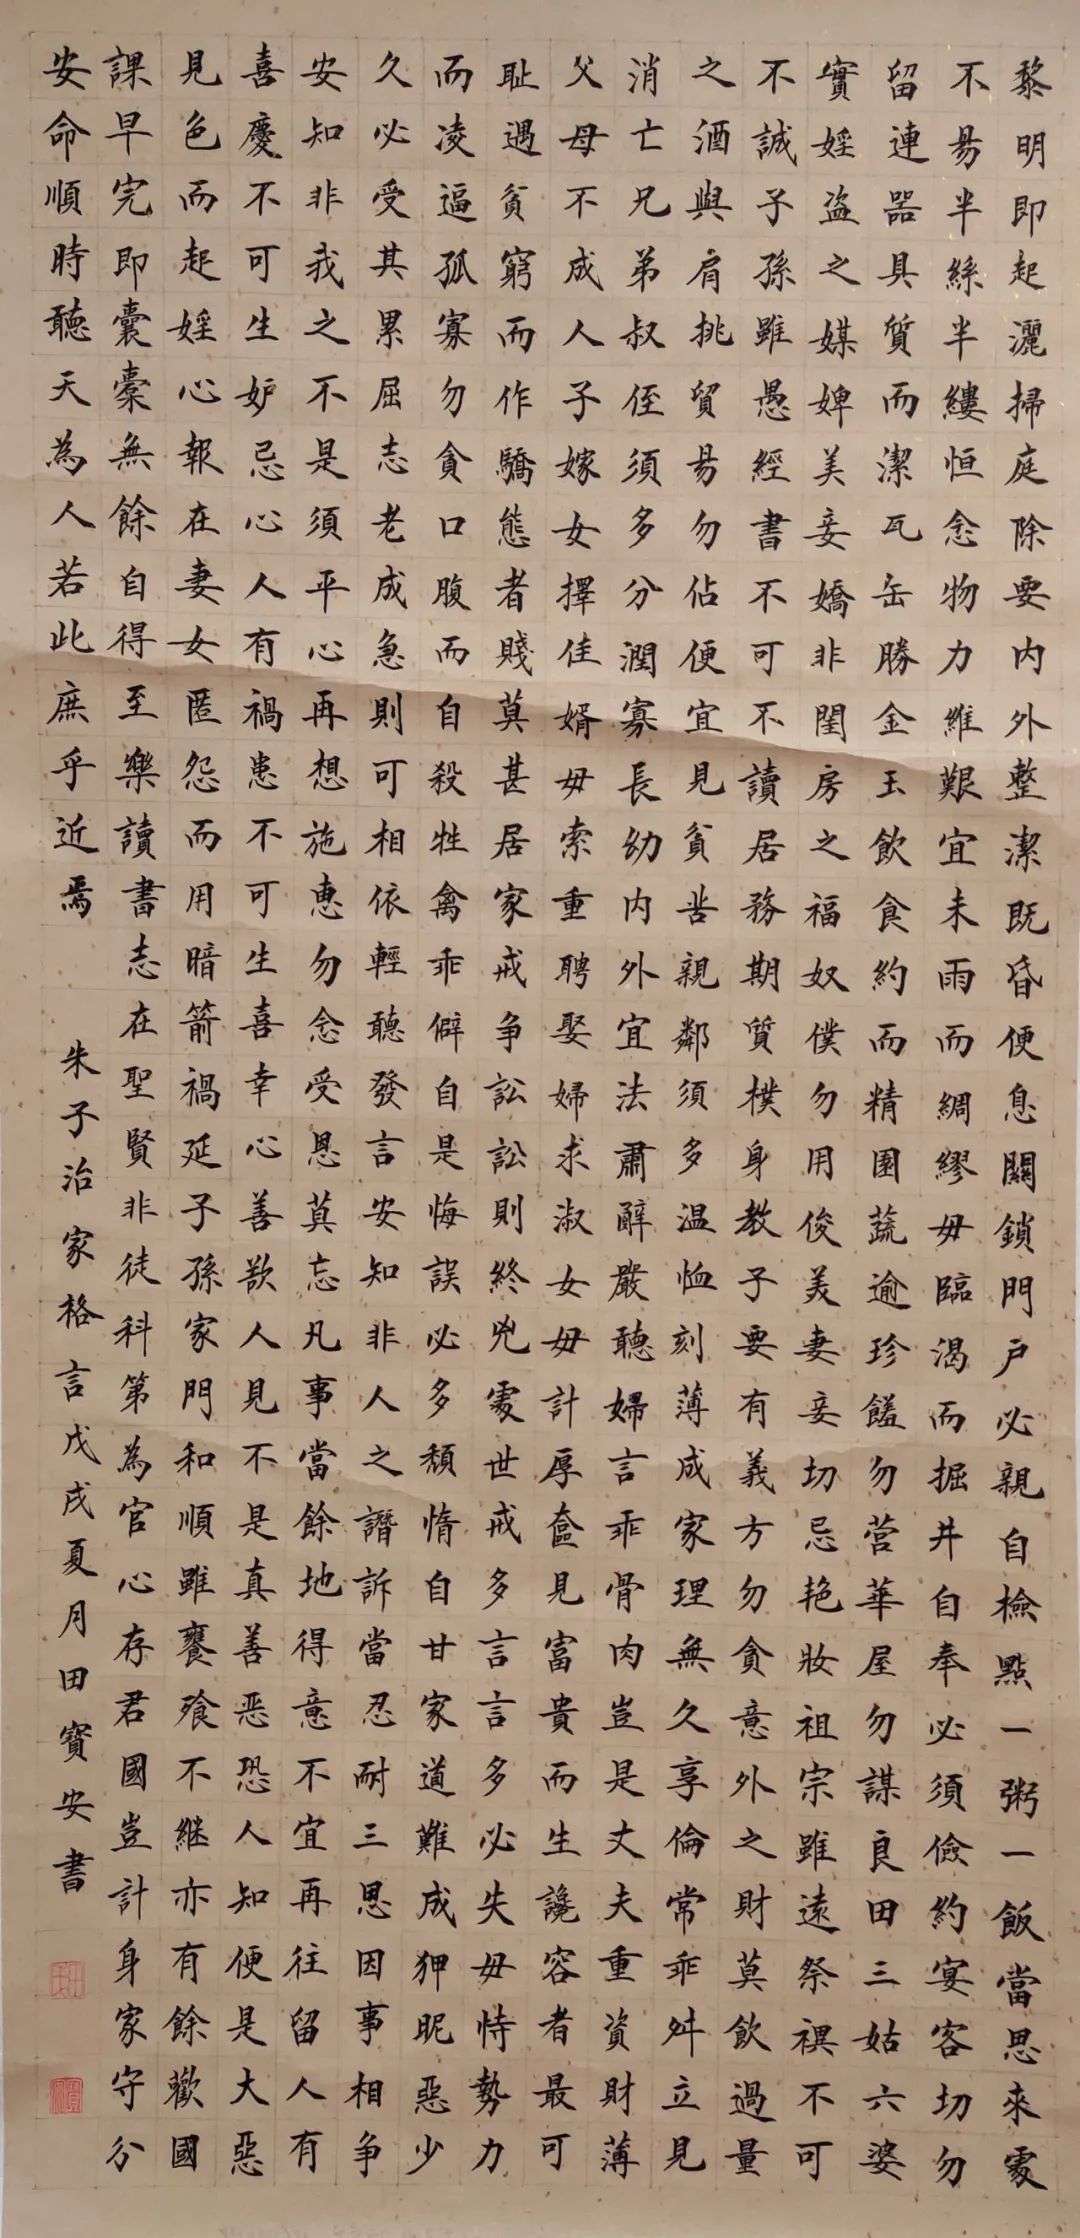 黎明即起灑掃庭除要内外整潔既昏便息關鎖門户必親自檢點一粥一飯當思來處
不易半絲半縷恒念物力維艱宜未雨而綢繆毋臨渴而掘井自奉必須儉約宴客切勿
留連器具質而潔瓦缶勝金玉飲食約而精園蔬逾珍饈勿營華屋勿謀良田三姑六婆
實婬盗之媒婢美妾嬌非閨房之福奴僕勿用俊美妻妾切忌艳妝祖宗雖遠祭禩不可
不誠子孫雖愚經書不可不讀居務期質樸身教子要有義方勿貪意外之財莫飲過量
之酒與肩挑貿易勿佔便宜見貧苦親鄰須多温恤刻薄成家理無久享倫常乖舛立見
消亡兄弟叔侄須多分潤寡長幼内外宜法肅辭嚴聽婦言乖骨肉豈是丈夫重資財薄
父母不成人子嫁女擇佳婿毋索重聘娶婦求淑女毋計厚奩見富貴而生讒容者最可
耻遇貧窮而作驕態者賤莫甚居家戒争訟訟則終兇處世戒多言言多必失毋恃勢力
而凌逼孤寡勿貪口腹而自殺牲禽乖僻自是悔誤必多頹惰自甘家道難成狎昵惡少
久必受其累屈志老成急則可相依輕聽發言安知非人之譖訴當忍耐三思因事相争
安知非我之不是須平心再想施惠勿念受恩莫忘凡事當餘地得意不宜再往留人有
喜慶不可生妒忌心人有禍患不可生喜幸心善欲人見不是真善恶恐人知便是大惡
見色而起婬心報在妻女匿怨而用暗箭禍延子孫家門和順雖饔飧不継亦有餘歡國
課早完即囊橐無餘自得至樂讀書志在聖賢非徒科第為官心存君國豈計身家守分
安命順時聽天為人若此庶乎近焉 朱子治家格言戊戌夏月田寶安書